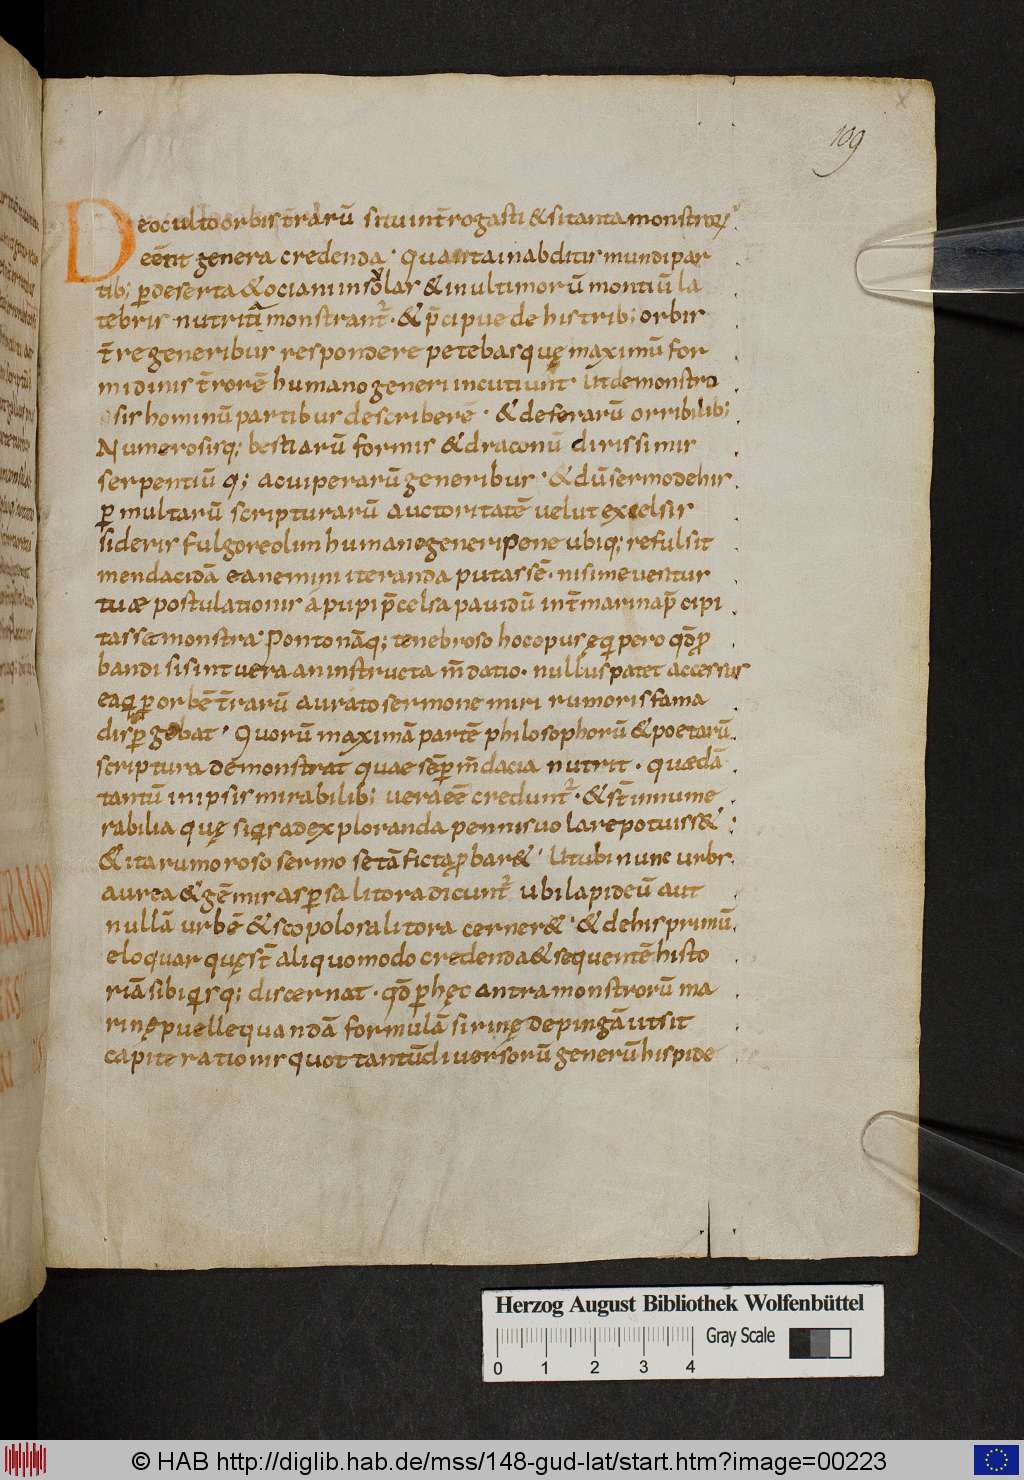 109
De oculto orbis t̄rarū situ int̄rogasti & si tanta monstroꝝ
eēnt genera credenda · Quanta in abditis mundi par
tib; ꝑ deserta & ociani insolas & in ultimorū montiū la
tebris nutrita monstrant᷑ · & p̄cipue de his trib; orbis
t̄re generibus respondere petebas quę maximū for
midinis t̄rorē humano generi incutiunt · Ut de monstro
sis hominū partibus describerē · & de ferarū orribilib;
Numerosisq; bestiarū formis & draconū dirissimis
serpentiū q; ac uiperarū generibus · & dū sermo de his
ꝑ multarū scripturarū auctoritatē uelut excelsis
sideris fulgore olim humano generi pene ubiq; refulsit
mendacidā ea nemini iteranda putassē · nisi me uentus
tuæ postulationis a pupi p̄celsa pauidū int̄ marina p̄cipi
tasset monstra · Ponto nāq; tenebroso hoc opus ęqipero qd̄ ꝓ
bandi si sint uera an instructa m̄datio · nullus patet accessus
eaq ꝑ orbē t̄rarū aurato sermone miri rumoris fama
disꝑgebat · Quorū maximā partē philosophorū & poetarū
scriptura demonstrat quae sēꝑ m̄dacia nutrit · quædā
tantū in ipsis mirabilib; uera eē credunt᷑ · & st̄ innume
rabilia quę siqis ad exploranda pennis uolare potuiss&
& ita rumoroso sermo setā ficta ꝓbar& · Ut ubi nunc urbs
aurea & gēmis asꝑsa litora dicunt᷑ ubi lapideū aut
nullā urbē & scopolosa litora cerner& · & de his primū
eloquar quę st̄ aliquo modo credenda & sequentē histo
riā sibi qisq; discernat · qd̄ ꝑ hęc antra monstrorū ma
rinę puelle quandā formulā sirinę depingā ut sit
capite rationis quot tantū diuersorū generū hispide
Herzog August Bibliothek Wolfenbüttel
Gray Scale
0 1 2 3 4
© HAB http://diglib.hab.de/mss/148-gud-lat/start.htm?image=00223